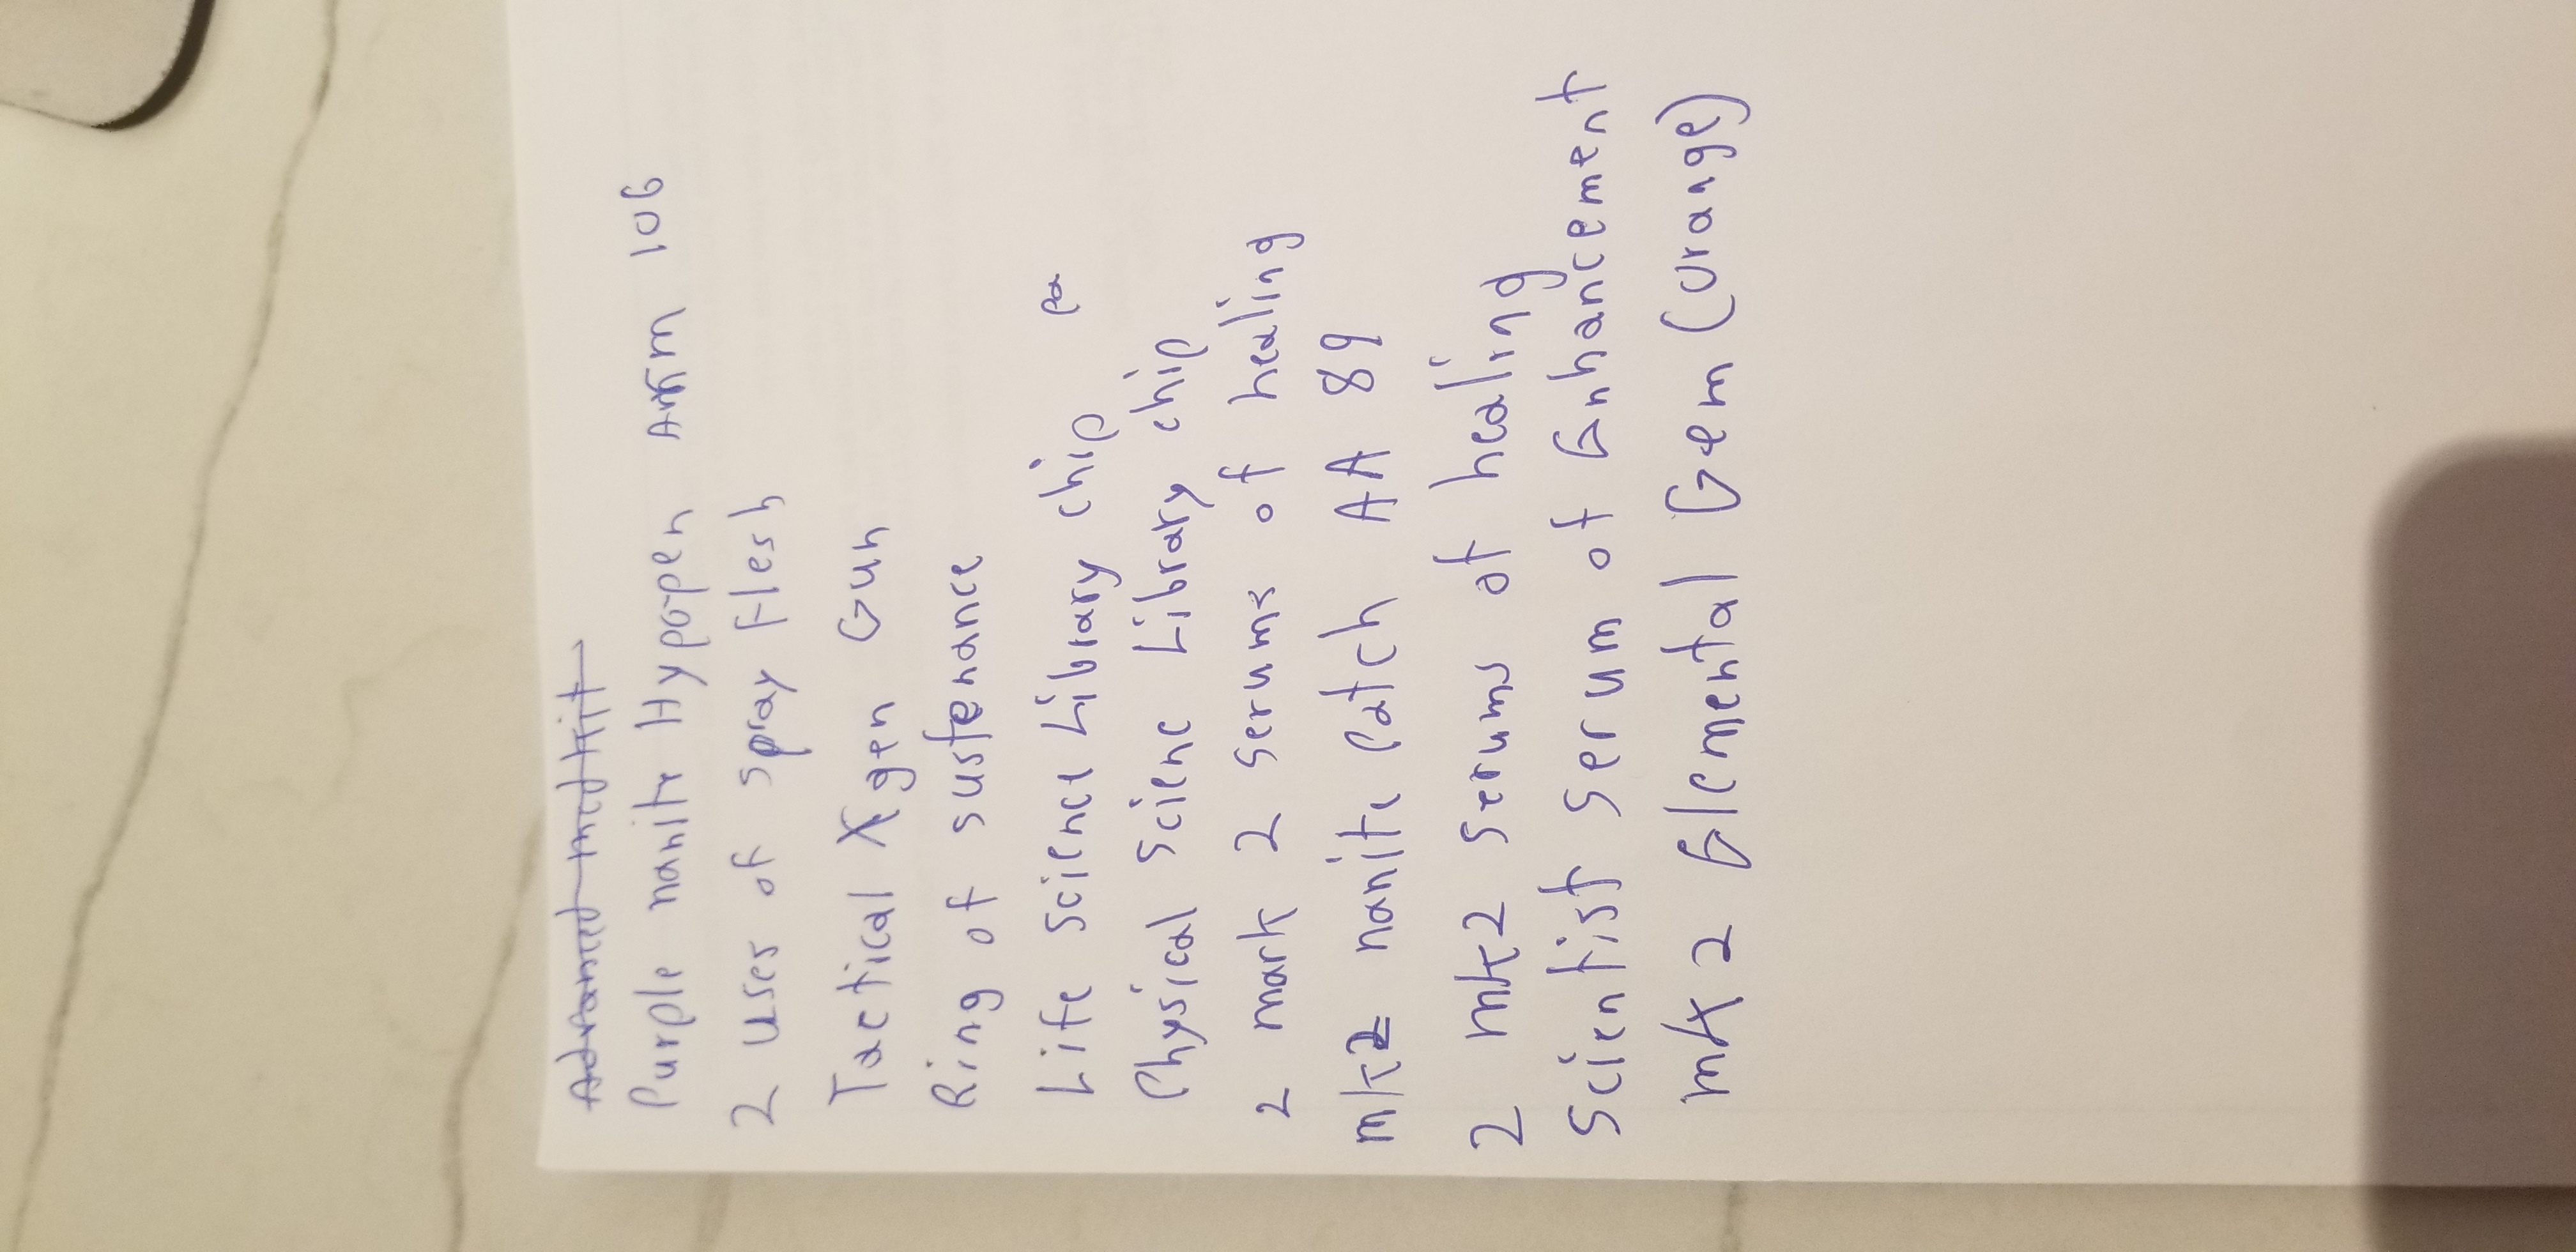 Advanced medkit
Purple nanite Hypopen ARM 106
2 uses of spray flesh
Tactical Xgen Gun
Ring of sustenance
Life Science Library chip
Physical Science Library chip
2 mark 2 serums of healing
mk2 nanite Patch AA 89
2 mk2 serums of healing
Scientist serum of Enhancement
mk 2 Elemental Gem (Orange)